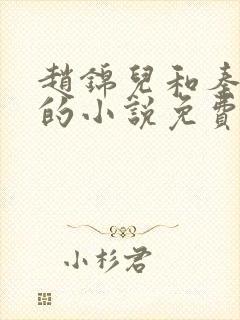 趙錦兒和秦
的小說免費
小杉君